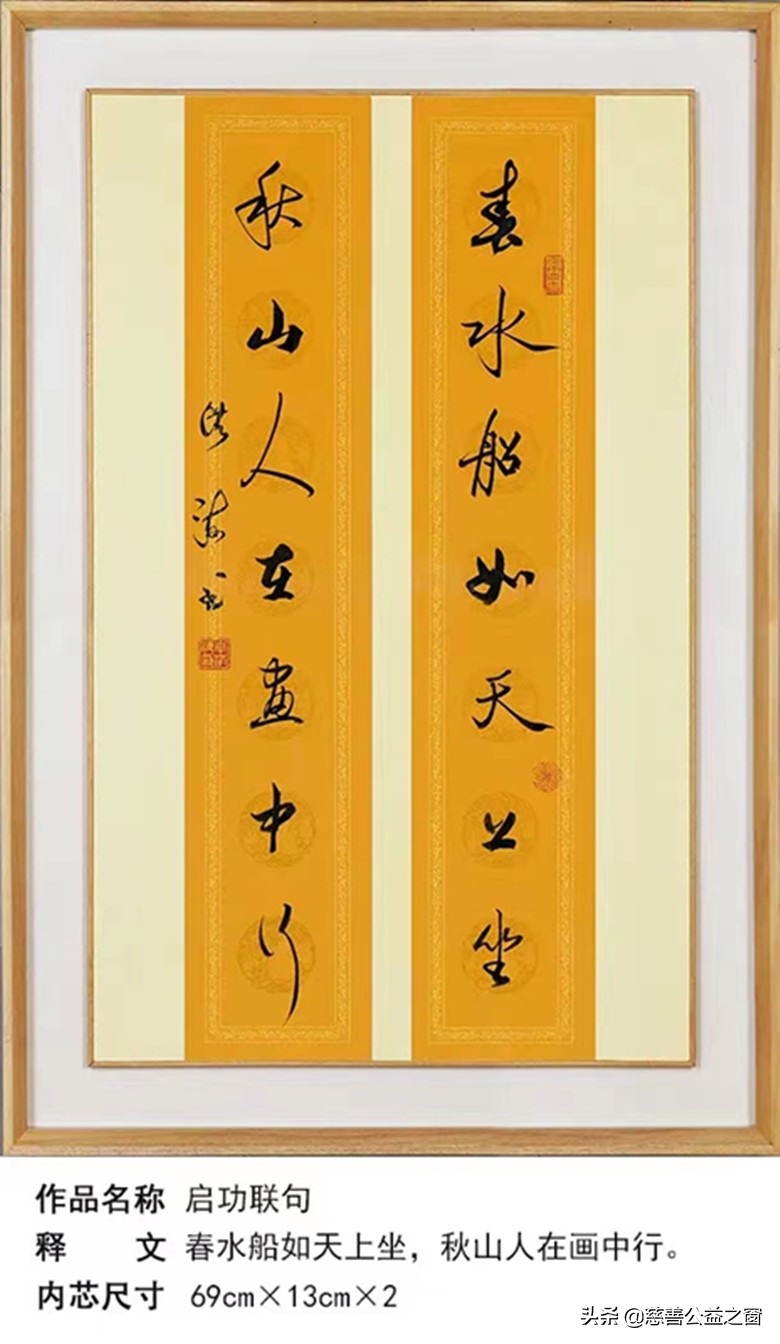 春水船如天上坐
秋山人在画中行
洪涛书
作品名称 启功联句
释文 春水船如天上坐，秋山人在画中行。
内芯尺寸 69cm×13cm×2
头条 @慈善公益之窗